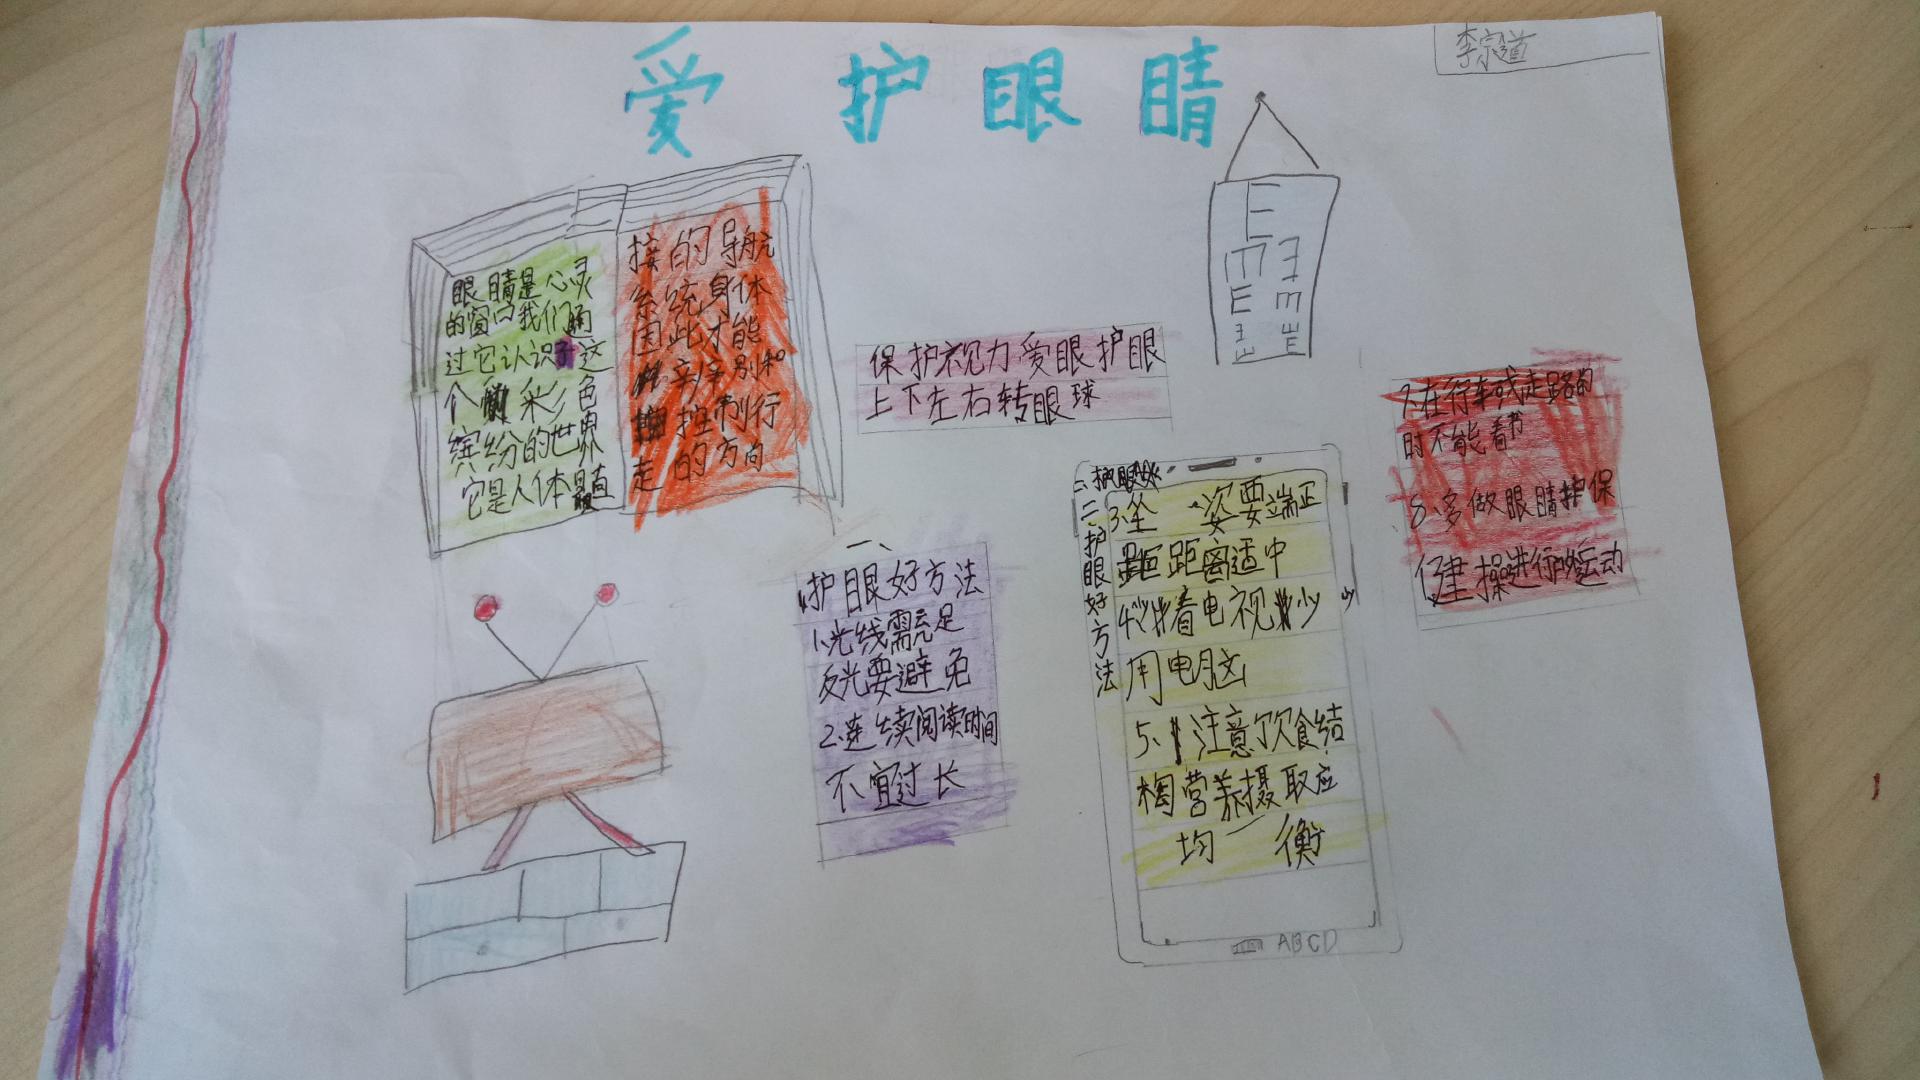 爱护眼睛
李宗道
眼睛是心灵
的窗口我们通
过它认识了这
个 彩色
缤纷的世界
它是人体最直
接的导航
系统身体
因此才能
辨别和
控制行
走的方向
E
E E
E E
E E
E E
保护视力爱眼护眼
上下左右转眼球
一、
护眼好方法
1、光线需充足
反光要避免
2、连续阅读时间
不宜过长
二、护眼好方法
3、坐 姿要端正
距距离适中
4、少看电视少
用电脑
5、注意饮食结
构营养摄取应
均 衡
ABCD
7、在行车或走路的
时不能看书
8、多做眼睛护保
健操进行的运动